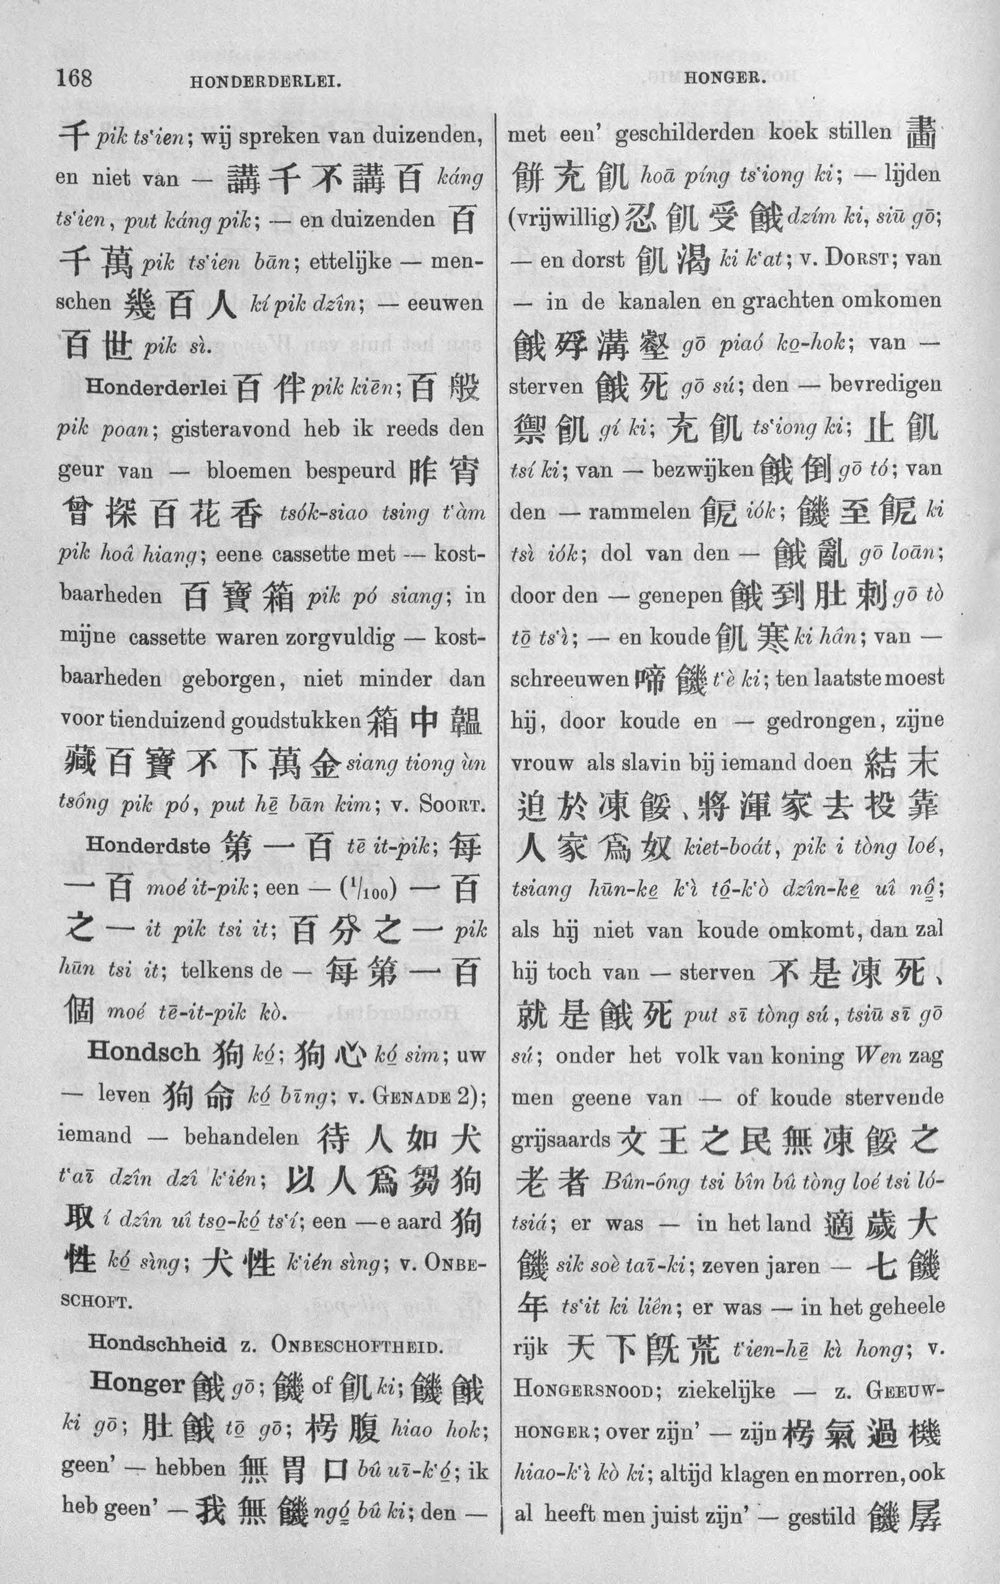 168
HONDERDERLEI.
HONGER.
千 pik ts‘ien; wij spreken van duizenden,
en niet van — 講千不講百 káng
ts‘ien, put káng pik; — en duizenden 百
千萬 pik ts‘ien bān; ettelijke — men-
schen 幾百人 kí pik dzîn; — eeuwen
百世 pik sì.
Honderderlei 百件 pik kiēn; 百般
pik poan; gisteravond heb ik reeds den
geur van — bloemen bespeurd 昨宵
曾探百花香 tsók-siao tsing t‘àm
pik hoâ hiang; eene cassette met — kost-
baarheden 百寶箱 pik pó siang; in
mijne cassette waren zorgvuldig — kost-
baarheden geborgen, niet minder dan
voor tienduizend goudstukken 箱中韞
藏百寶不下萬金 siang tiong ùn
tsông pik pó, put hē̤ bān kim; v. SOORT.
Honderdste 第一百 tē it-pik; 每
一百 moé it-pik; een — (1/100) 一百
之一 it pik tsi it; 百分之一 pik
hūn tsi it; telkens de — 每第一百
個 moé tē-it-pik kò.
Hondsch 狗 kó̤; 狗心 kó̤ sim; uw
— leven 狗命 kó̤ bīng; v. GENADE 2);
iemand — behandelen 待人如犬
t‘aī dzîn dzî k‘ién; 以人爲芻狗
取 í dzîn uî tso̤-kó̤ ts‘í; een —e aard 狗
性 kó̤ sìng; 犬性 k‘ién sìng; v. ONBE-
SCHOFT.
Hondschheid z. ONBESCHOFTHEID.
Honger 餓 gō; 饑 of 飢 ki; 饑餓
ki gō; 肚餓 tō̤ gō; 枵腹 hiao hok;
geen’ — hebben 無胃口 bû uī-k‘ó̤; ik
heb geen’ — 我無饑 ngó̤ bû ki; den —
met een’ geschilderden koek stillen 畵
餠充飢 hoā píng ts‘iong ki; — lijden
(vrijwillig) 忍飢受餓 dzím ki, siū gō;
— en dorst 飢渴 ki k‘at; v. DORST; van
— in de kanalen en grachten omkomen
餓殍溝壑 gō piaó ko̤-hok; van —
sterven 餓死 gō sú; den — bevredigen
禦飢 gí ki; 充飢 ts‘iong ki; 止飢
tsí ki; van — bezwijken 餓倒 gō tó; van
den — rammelen 䭃 iók; 饑至䭃 ki
tsì iók; dol van den — 餓亂 gō loān;
door den — genepen 餓到肚刺 gō tò
tō̤ ts‘ì; — en koude 飢寒 ki hân; van —
schreeuwen 啼饑 t‘è ki; ten laatste moest
hij, door koude en — gedrongen, zijne
vrouw als slavin bij iemand doen 結末
迫於凍餒、將渾家去投靠
人家爲奴 kiet-boát, pik i tòng loé,
tsiang hūn-ke̤ k‘ì tô̤-k‘ò dzîn-ke̤ uî nô̤;
als hij niet van koude omkomt, dan zal
hij toch van — sterven 不是凍死、
就是餓死 put sī tòng sú, tsiū sī gō
sú; onder het volk van koning Wen zag
men geene van — of koude stervende
grijsaards 文王之民無凍餒之
老者 Bûn-óng tsi bîn bû tòng loé tsi ló-
tsiá; er was — in het land 適歲大
饑 sik soè taī-ki; zeven jaren — 七饑
年 ts‘it ki liên; er was — in het geheele
rijk 天下旣荒 t‘ien-hē̤ kì hong; v.
HONGERSNOOD; ziekelijke — z. GEEUW-
HONGER; over zijn’ — zijn 枵氣過機
hiao-k‘ì kò ki; altijd klagen en morren, ook
al heeft men juist zijn’ — gestild 饑孱